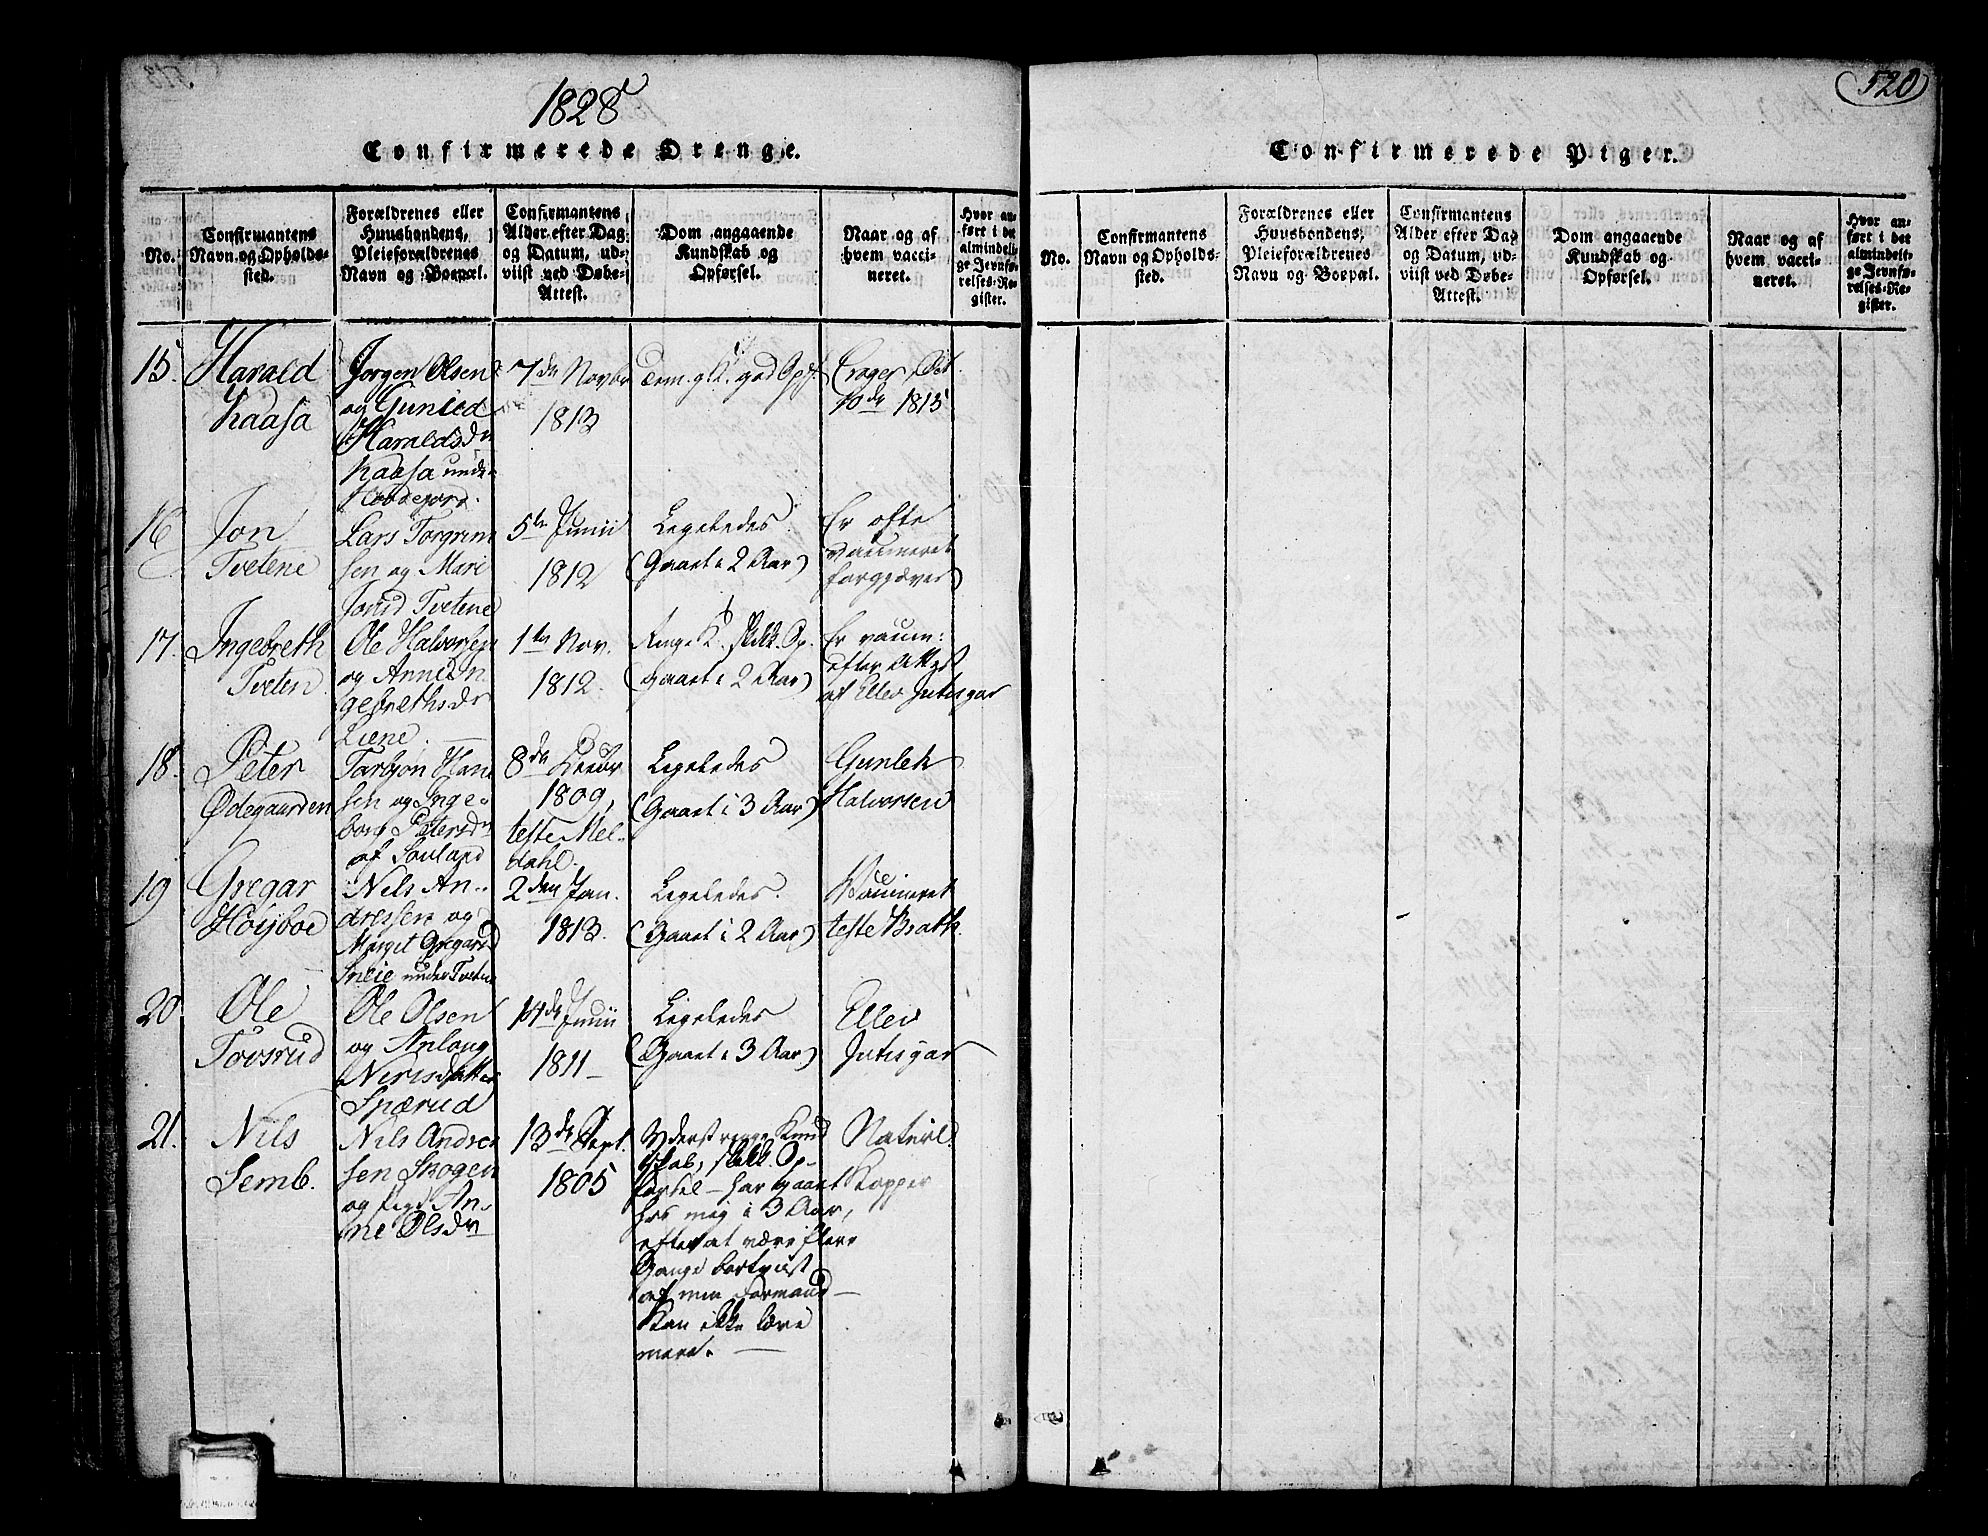 520
1828
Confirmerede Drenge.
No.
Confirmantens Navn og Opholdssted.
Forældrenes eller Huusbondens, Pleieforældrenes Navn og Boepæl.
Confirmantens Alder efter Dag og Datum, udviist ved Døbe-Attest.
Dom angaaende Kundskab og Opførsel.
Naar og af hvem vaccineret.
Hvor anført i det almindelige Jevnførelses-Register.
15.
Harald
Kaasa
Jørgen Olsen
og Gunild
Haraldsdr
Kaasa under
7de Novbr
1813
Tem. g. K. god Opf.
10de 1815
16
Jon
Tvetene
Lars Torgrim
sen og Mari
Jonsd Tvetene
5te Junii
1812
Ligeledes
(Gaaet i 2 Aar)
Er ofte
vaccineret
forgjæves
17.
Ingebreth
Tveten
Ole Halvorsen
og Anne In
gebrethsdr
Liene.
1te Nov.
1812.
Ringe K. skikk. Op.
(gaaet i 2 Aar)
Er vaccin:
efter Attest
af Ellev Jutisgar
18.
Peter
Ødegaarden
Tarbjøn Han
sen og Inge-
borg Petersdr
af Sauland
8de
1809,
teste Mel-
dahl.
Ligeledes
(Gaaet i 3 Aar)
Gunlek
Halvorsen
19
Gregar
Höijboe
Nils An-
dressen og
Margit Gregarsd
Sneie under Tveten
2den Jan.
1813.
Ligeledes.
(Gaaet i 2 Aar)
Vaccineret
teste Brath.
20
Ole
Tovsrud
Ole Olsen
og Anlaug
Nirisdatter
Spærud
14de Junii
1811
Ligeledes
(Gaaet i 3 Aar)
Ellev
Jutisgar
21.
Nils
Semb.
Nils Andre
sen Skogen
og Anne Olsdr
13de Sept.
1805
Yderst ringe Kund
skab, skikk. Op-
førsel – har gaaet
hos mig i 3 Aar,
efter at være flere
Gange bortviist
af min Formand –
Kan ikke lære
mere.
Naturl.
Kopper
Confirmerede Piger.
No.
Confirmantens Navn og Opholdssted.
Forældrenes eller Huusbondens, Pleieforældrenes Navn og Boepæl.
Confirmantens Alder efter Dag og Datum, udviist ved Døbe-Attest.
Dom angaaende Kundskab og Opførsel.
Naar og af hvem vaccineret.
Hvor anført i det almindelige Jevnførelses-Register.